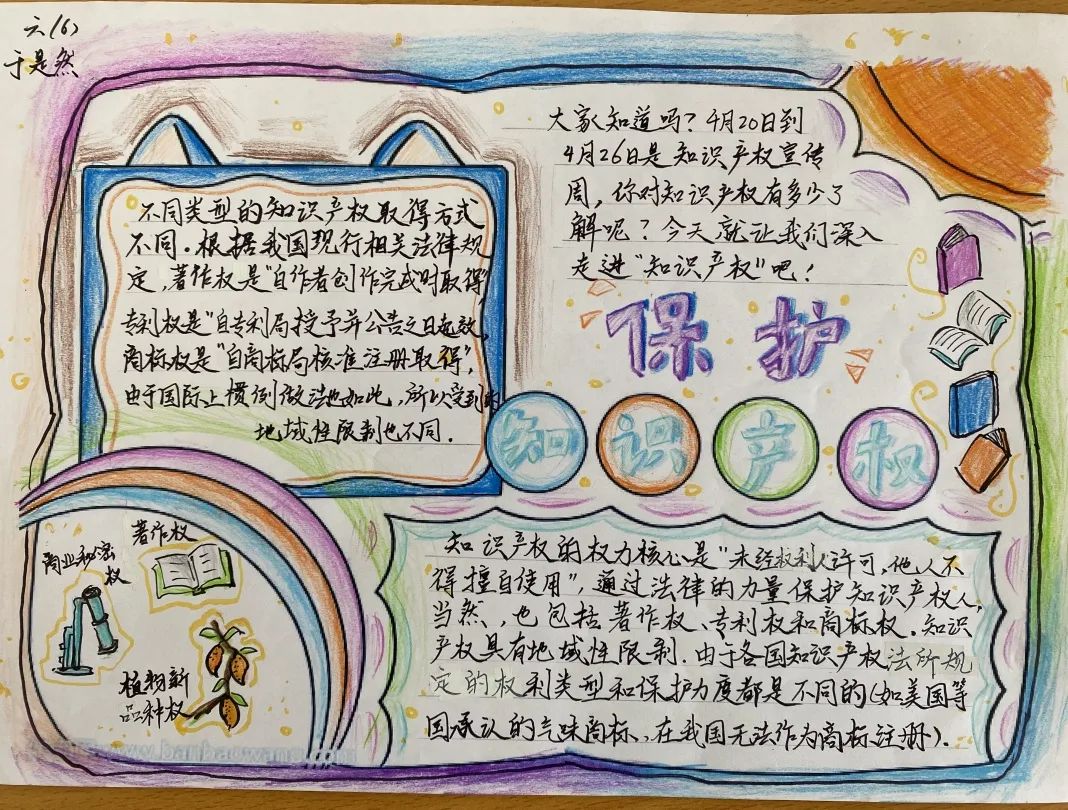 六(6)
于是然
不同类型的知识产权取得方式
不同.根据我国现行相关法律规
定,著作权是"自作者创作完成时取得"
专利权是"自专利局授予并公告之日起效,
商标权是"自商标局核准注册取得",
由于国际上惯例做法也如此,所以受到的
地域性限制也不同.
大家知道吗?4月20日到
4月26日是知识产权宣传
周,你对知识产权有多少了
解呢?今天就让我们深入
走进"知识产权"吧!
保护
知识产权
商业秘密
权
著作权
植物新
品种权
知识产权的权力核心是"未经权利人许可,他人不
得擅自使用",通过法律的力量保护知识产权人,
当然,也包括著作权、专利权和商标权.知识
产权具有地域性限制.由于各国知识产权法所规
定的权利类型和保护力度都是不同的(如美国等
国承认的气味商标,在我国无法作为商标注册).
www.banbaowang.com